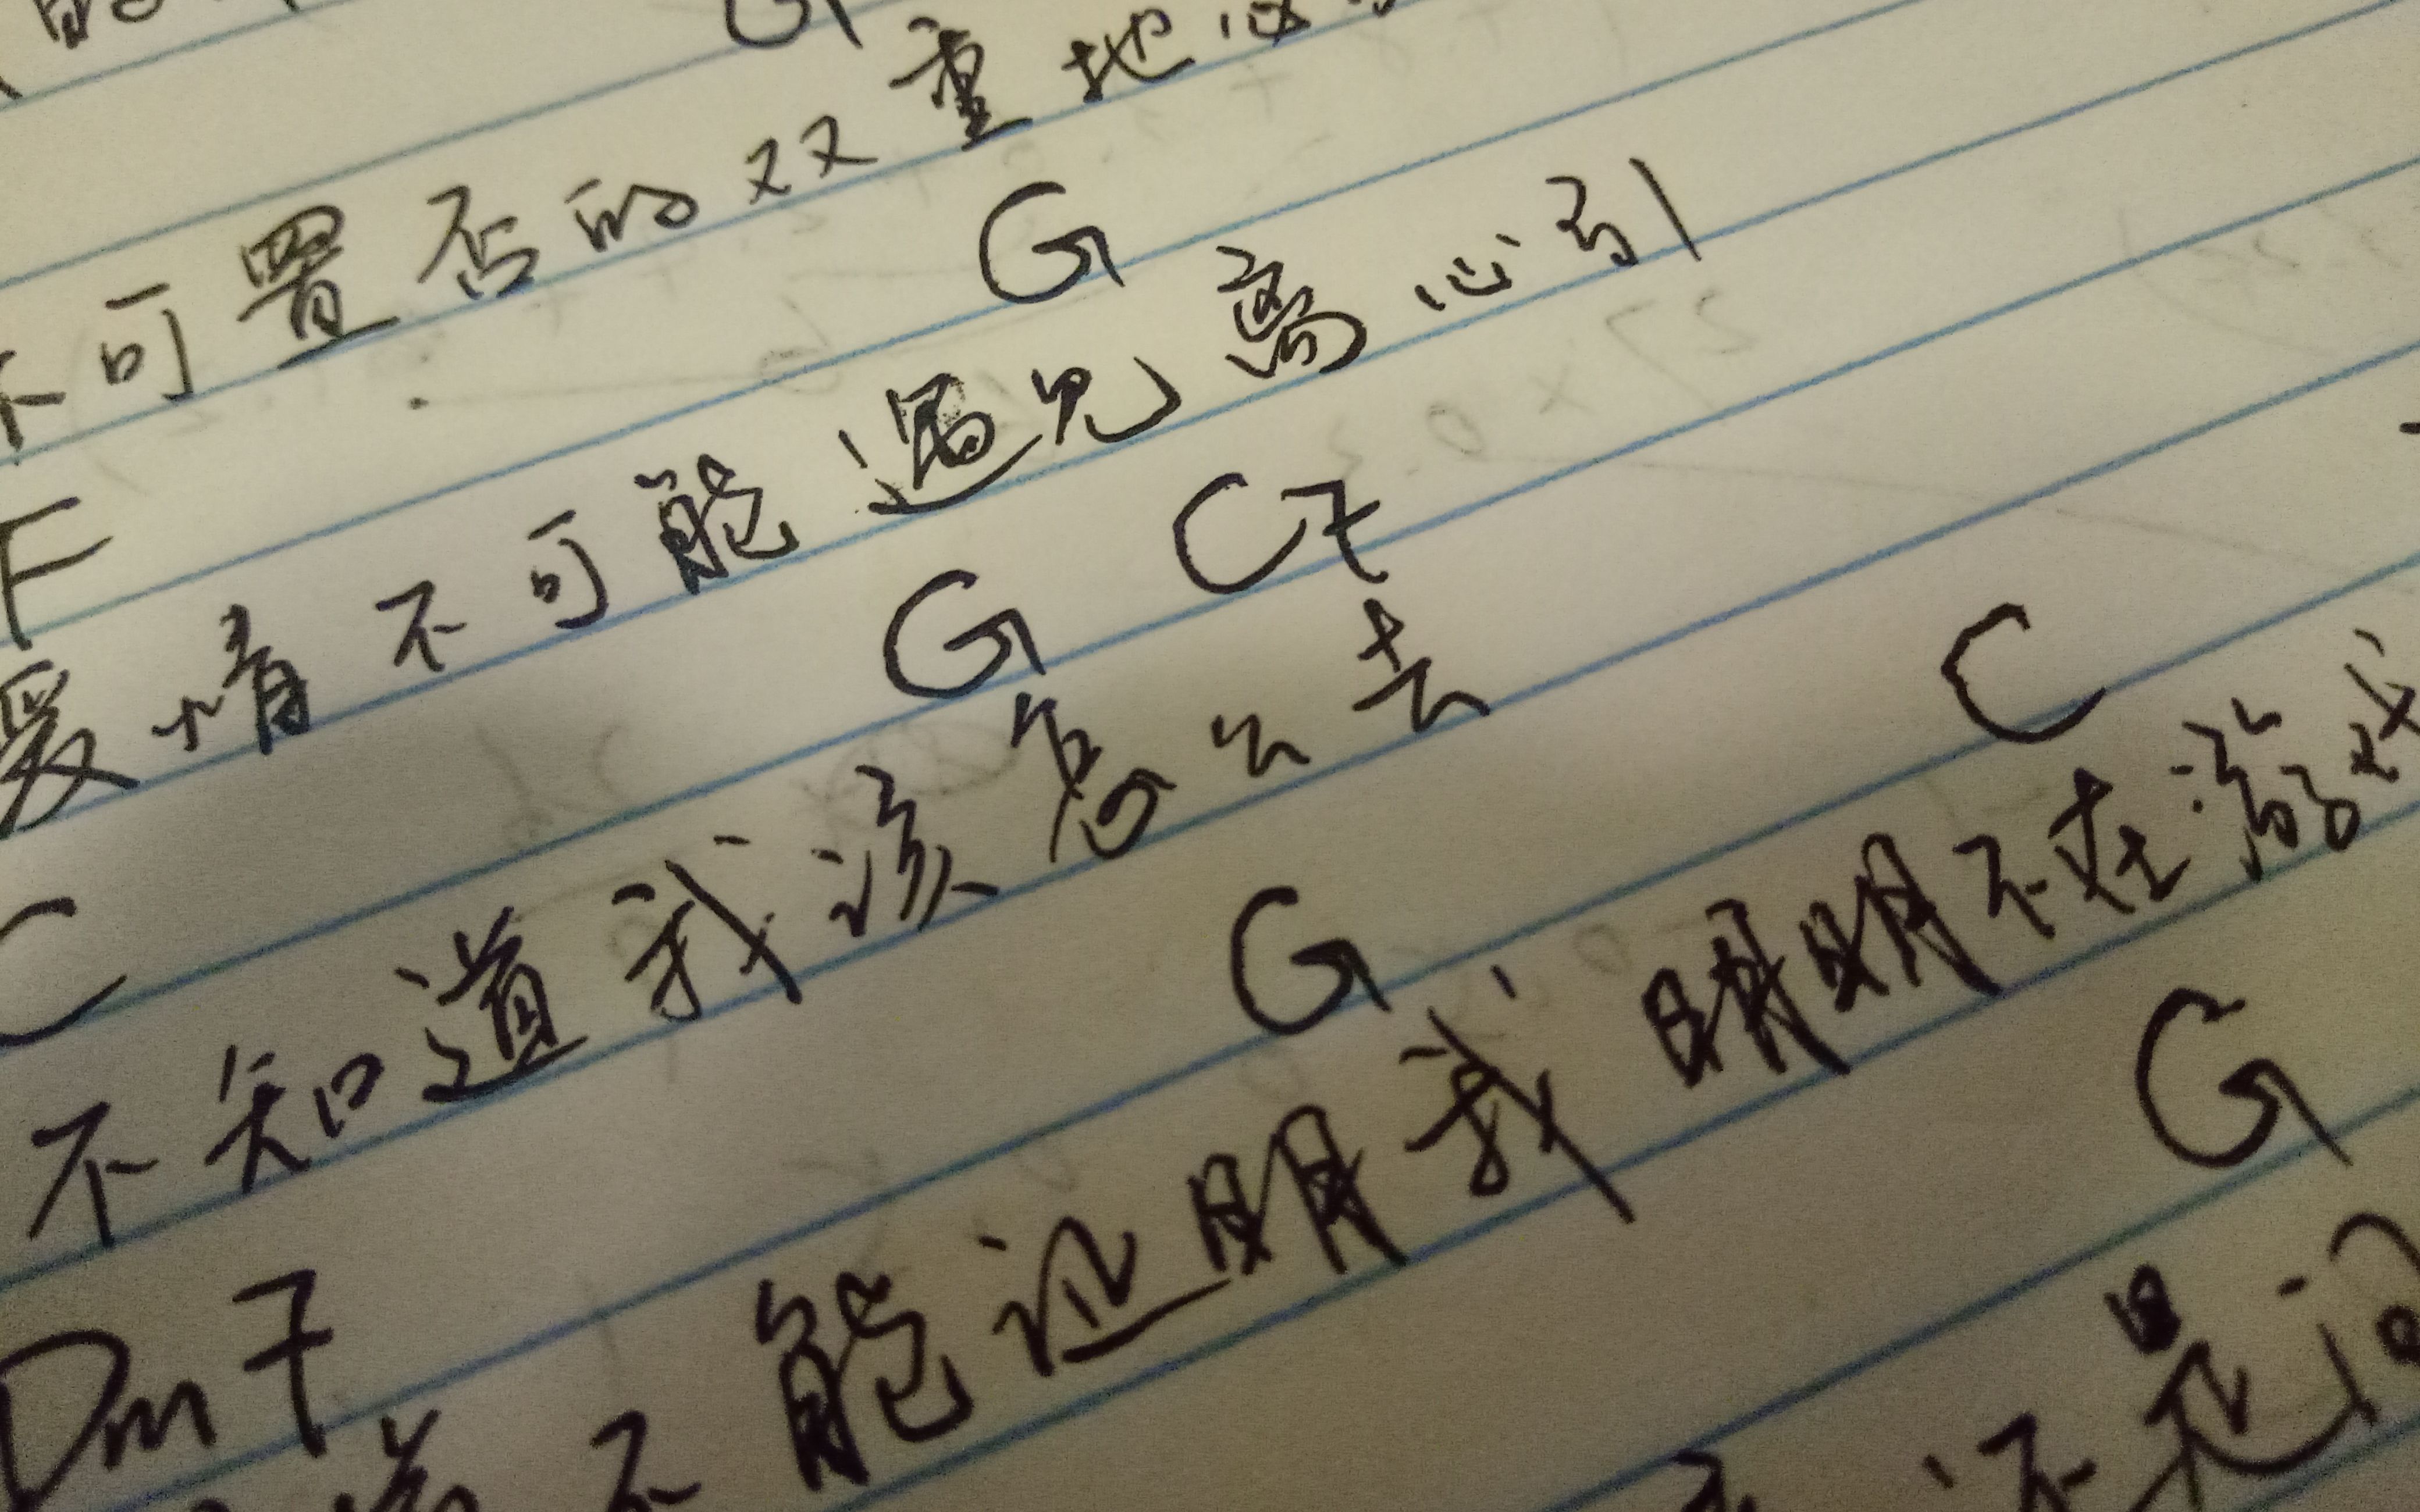 G
不可置否的双重地心引
F G
爱情不可能遇见离心引
C G C7
不知道我该怎么去
Dm7 G C
不能证明我明明不在游戏
G
还是